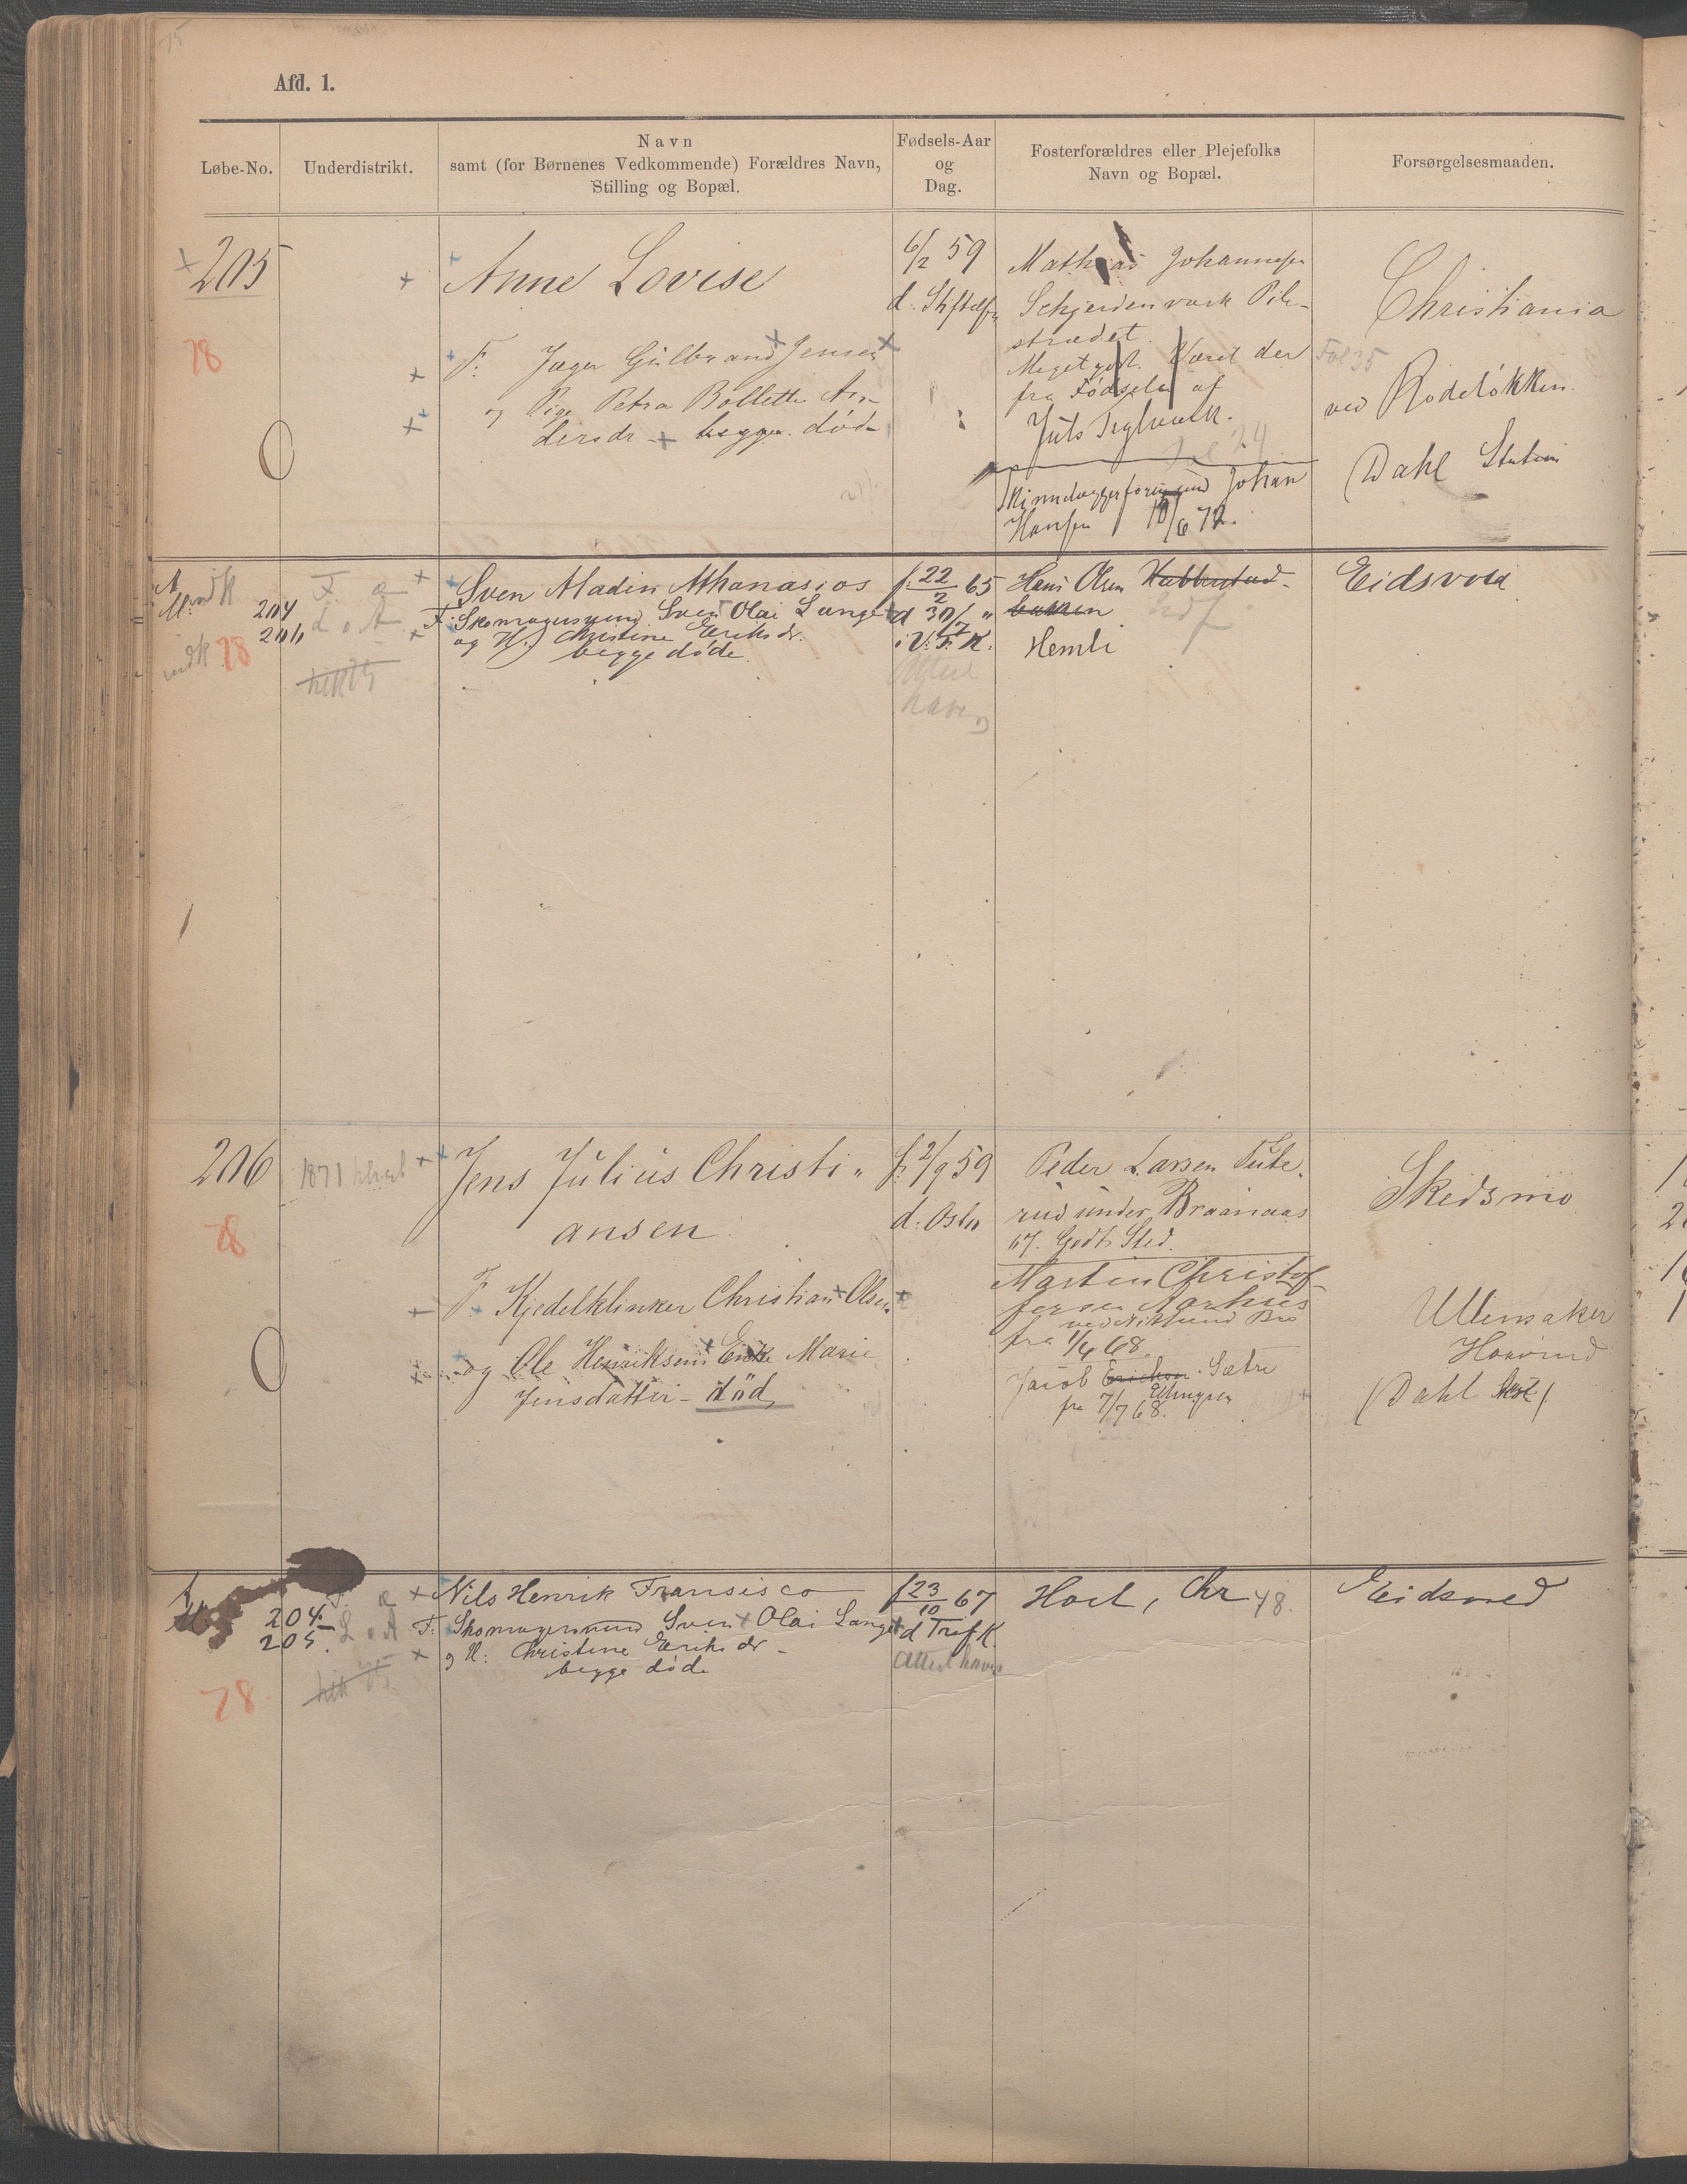 75
Afd. 1.
Løbe-No.
Underdistrikt.
Navn
samt (for Børnenes Vedkommende) Forældres Navn,
Stilling og Bopæl.
Fødsels-Aar
og
Dag.
Fosterforældres eller Plejefolks
Navn og Bopæl.
Forsørgelsesmaaden.
205
78
Anne Lovise
F. Jæger Gulbrand Jensen
og Pige Petra Bollette An-
dersdr - begge død
6/2 59
d. Stiftelsen
Mathias Johannesen
Schjerdenvack Pile-
strædet.
Meget godt. Været der
fra Fødselen af
Juls Teglværk.
Fol 24
Johan
Hansen 10/6 72.
Christiania
Fol 35
ved Rodeløkken.
(Dahl Station
204
206
78
F. a
L. A
Sven Aladin Athanasios
F. Skomagersvend Sven Olai Lange
og H. Christine Eriksdr.
begge døde.
f. 22/2 65
d 30/7 "
i V. F. K.
Attest
haves
Hans Olsen
bakken
Hemli
Eidsvold
206
78
1871
Jens Julius Christi-
ansen
F. Kjedelklinker Christian Olsen
og Ole Henriksens Enke Marie
Jensdatter - død
f. 2/9 59
d. Oslo
Peder Larsen Tute-
rud under Braanaas
67. Godt Sted.
Martin Christof-
fersen Aarhus
ved Nitsund Bro
fra 1/4 68.
Jacob Erichsen Sætre
Ellingsen
fra 7/7 68.
Skedsmo
Ullensaker
Hovind
(Dahl St.)
204.
205.
78.
F. a
L. A
Nils Henrik Fransisco
F. Skomagersvend Sven Olai Lange
og H: Christine Eriks dr -
begge døde
f 23/10 67
d Tref K.
Attest haves
Hoel, Chr 48.
Eidsvold